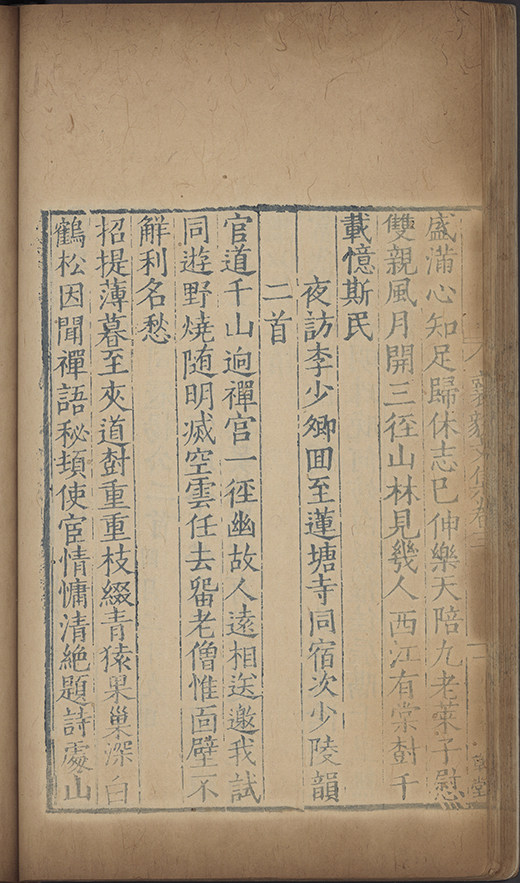 盛滿心知足歸休志已伸樂天陪九老萊子慰
雙親風月開三徑山林見幾人西江有棠樹千
載憶斯民
夜訪李少卿囬至蓮塘寺同宿次少陵韻
二首
官道千山逈禪宫一徑幽故人遠相送邀我試
同遊野燒随明滅空雲任去畱老僧惟面壁不
解利名愁
招提薄暮至夾道對重重枝綴青猿果巢深白
鶴松因聞禪語秘頓使宦情慵清絶題詩處山